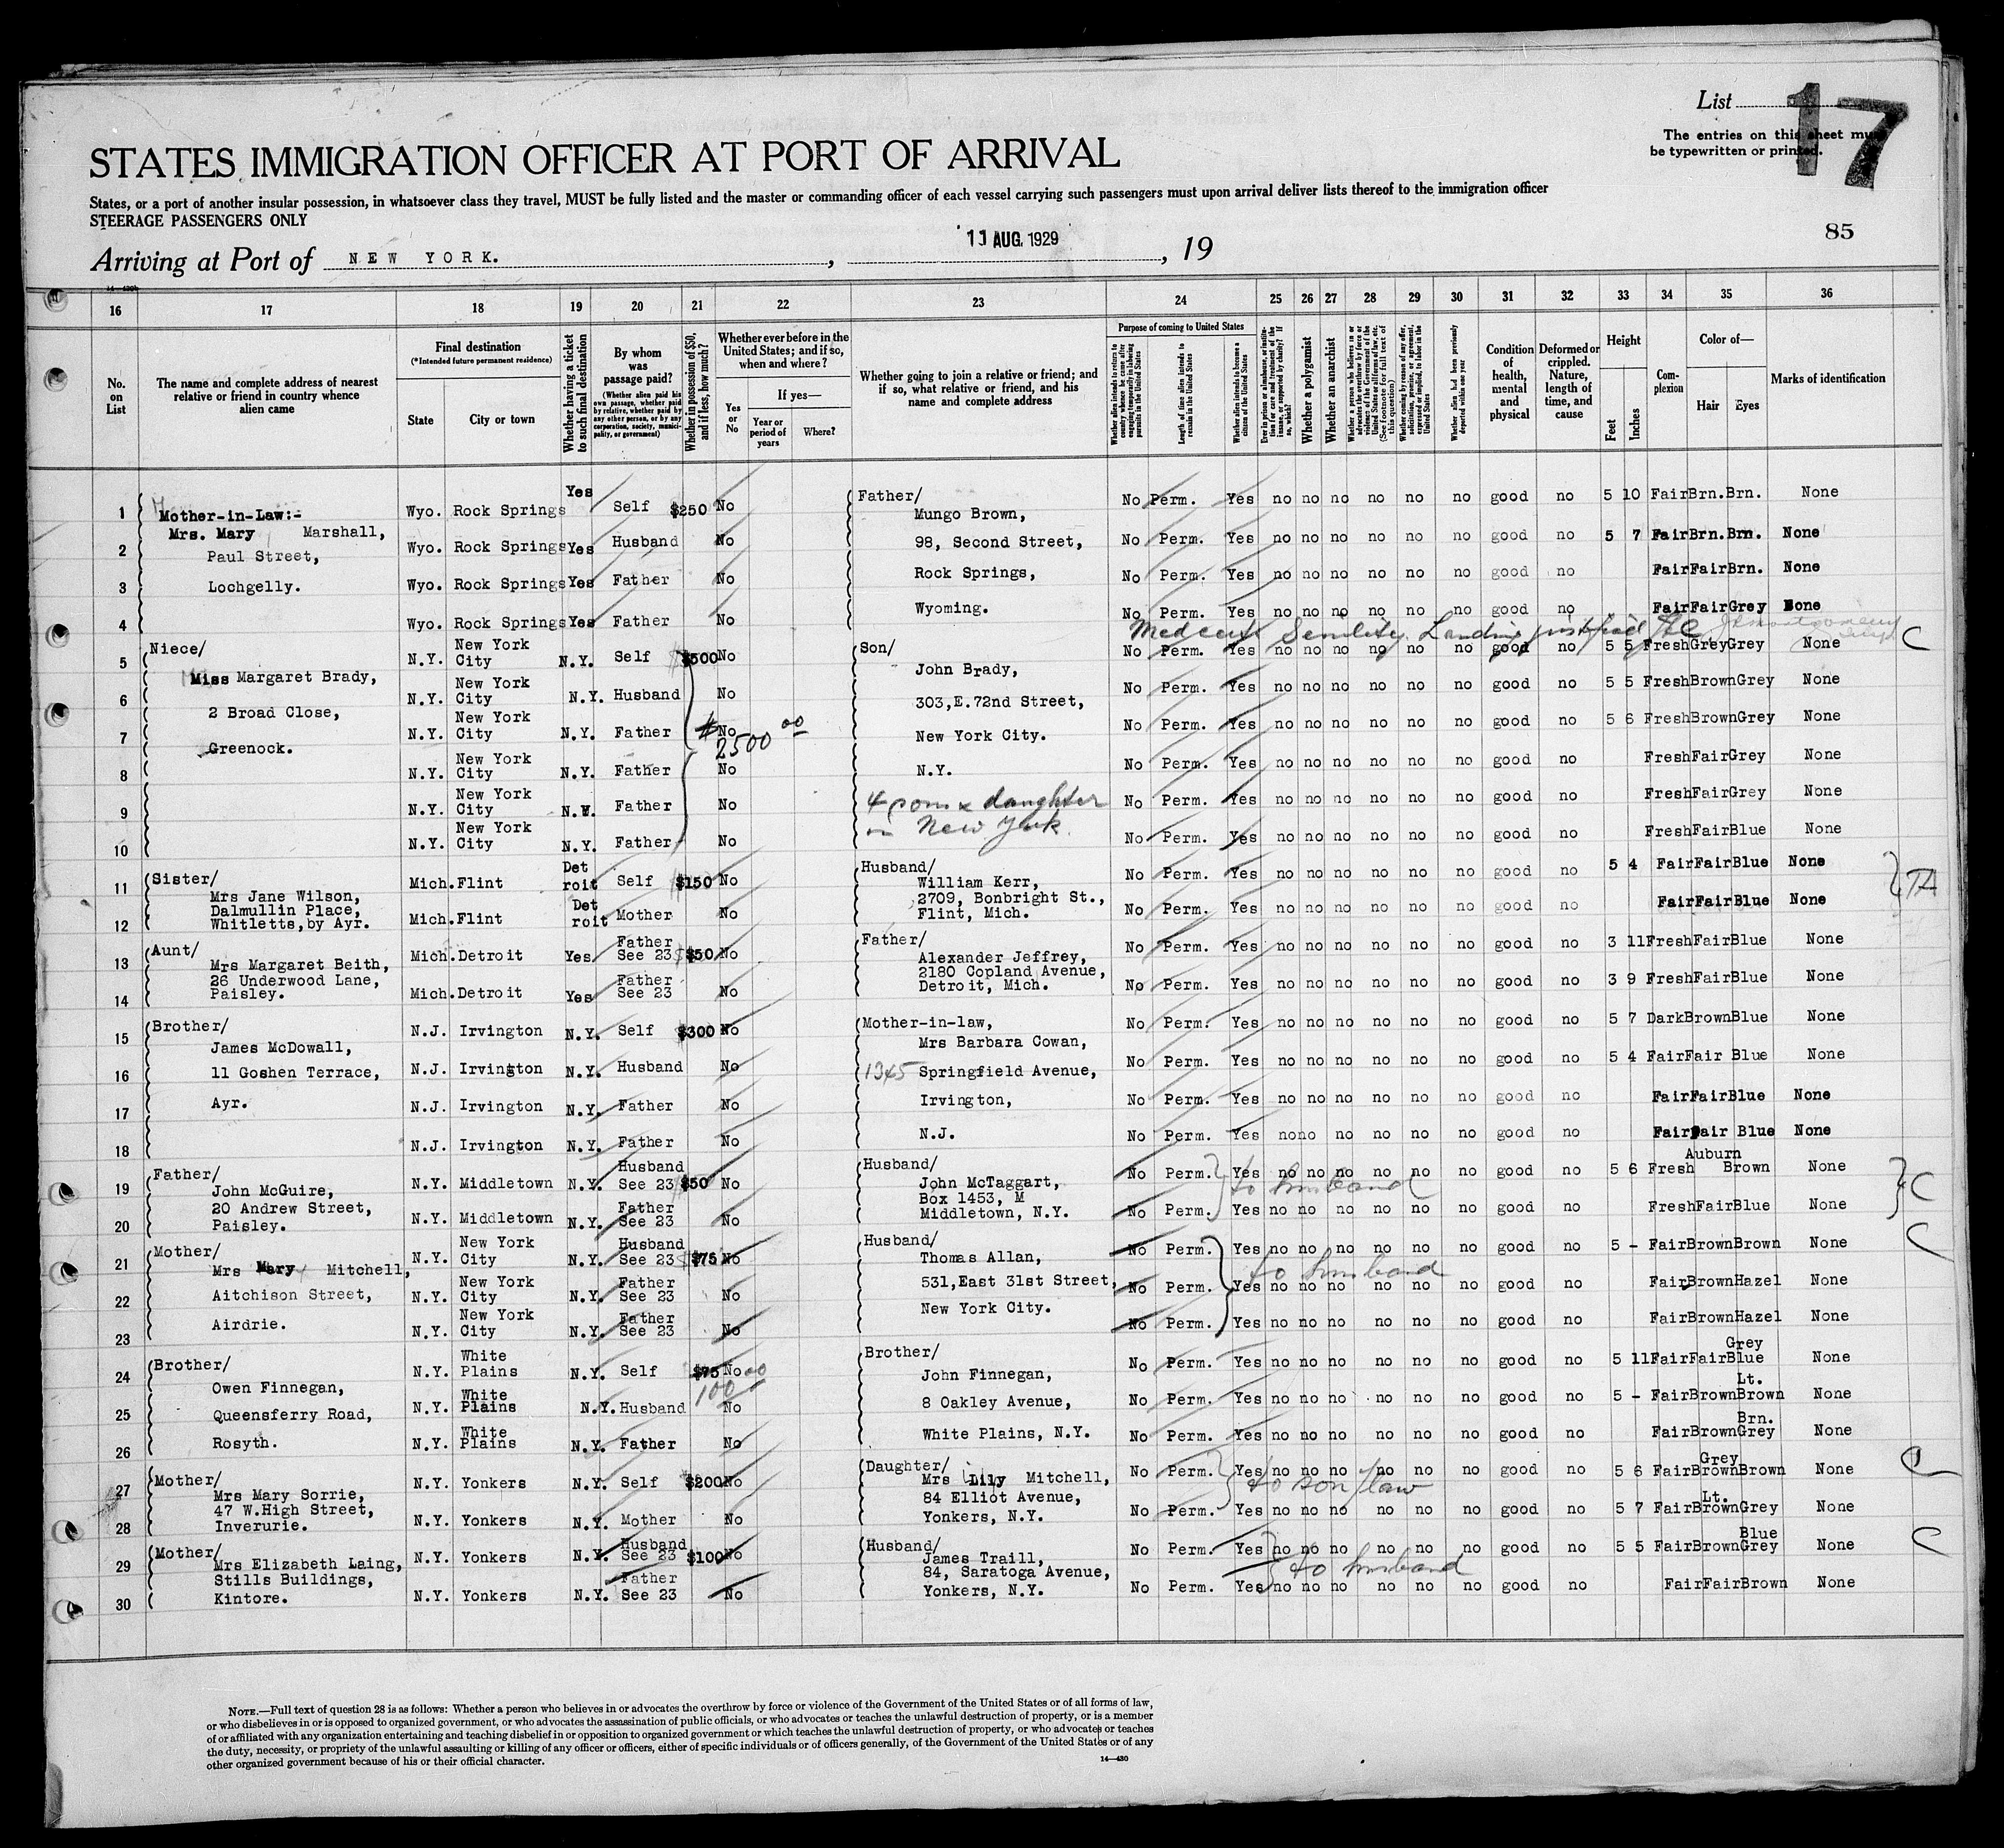 List 17
The entries on this sheet must
be typewritten or printed.
STATES IMMIGRATION OFFICER AT PORT OF ARRIVAL
States, or a port of another insular possession, in whatsoever class they travel, MUST be fully listed and the master or commanding officer of each vessel carrying such passengers must upon arrival deliver lists thereof to the immigration officer
STEERAGE PASSENGERS ONLY
85
Arriving at Port of NEW YORK. , 11 AUG. 1929 , 19
16 17 18 19 20 21 22 23 24 25 26 27 28 29 30 31 32 33 34 35 36
No. on List
The name and complete address of nearest relative or friend in country whence alien came
Final destination
(*Intended future permanent residence)
State
City or town
Whether having a ticket to such final destination
By whom was passage paid?
(Whether alien paid his own passage, whether paid by relative, whether paid by any other person, or by any corporation, society, municipality, or government)
Whether in possession of $50, and if less, how much?
Whether ever before in the United States; and if so, when and where?
Yes or No
If yes—
Year or period of years
Where?
Whether going to join a relative or friend; and if so, what relative or friend, and his name and complete address
Purpose of coming to United States
Length of time alien intends to remain in the United States
Whether alien intends to become a citizen of the United States
Whether a polygamist
Whether an anarchist
Whether alien had been previously deported within one year
Condition of health, mental and physical
Deformed or crippled. Nature, length of time, and cause
Height
Feet
Inches
Complexion
Color of—
Hair
Eyes
Marks of identification
1 Mother-in-Law:- Wyo. Rock Springs Yes Self $250 No Father/ Mungo Brown, No Perm. Yes no no no no no no good no 5 10 Fair Brn. Brn. None
2 Mrs. Mary Marshall, Paul Street, Wyo. Rock Springs Yes Husband No 98, Second Street, No Perm. Yes no no no no no no good no 5 7 Fair Brn. Brn. None
3 Lochgelly. Wyo. Rock Springs Yes Father No Rock Springs, No Perm. Yes no no no no no no good no Fair Fair Brn. None
4 Wyo. Rock Springs Yes Father No Wyoming. No Perm. Yes no no no no no no good no Fair Fair Grey None
Med cert Senility. Landing justified
5 Niece/ N.Y. New York City N.Y. Self $500 No Son/ No Perm. Yes no no no no no no good no 5 5 Fresh Grey Grey None C
6 Miss Margaret Brady, N.Y. New York City N.Y. Husband No John Brady, 303,E.72nd Street, No Perm. Yes no no no no no no good no 5 5 Fresh Brown Grey None
7 2 Broad Close, N.Y. New York City N.Y. Father $2500 00 No New York City. No Perm. Yes no no no no no no good no 5 6 Fresh Brown Grey None
8 Greenock. N.Y. New York City N.Y. Father No N.Y. No Perm. Yes no no no no no no good no Fresh Fair Grey None
9 N.Y. New York City N.Y. Father No 4 sons & daughter No Perm. Yes no no no no no no good no Fresh Fair Grey None
10 N.Y. New York City N.Y. Father No in New York. No Perm. Yes no no no no no no good no Fresh Fair Blue None
11 Sister/ Mrs Jane Wilson, Mich. Flint Detroit Self $150 No Husband/ William Kerr, 2709, Bonbright St., No Perm. Yes no no no no no no good no 5 4 Fair Fair Blue None
12 Dalmullin Place, Whitletts,by Ayr. Mich. Flint Detroit Mother No Flint, Mich. No Perm. Yes no no no no no no good no Fair Fair Blue None
13 Aunt/ Mrs Margaret Beith, Mich. Detroit Yes Father See 23 $50 No Father/ Alexander Jeffrey, No Perm. Yes no no no no no no good no 3 11 Fresh Fair Blue None
14 26 Underwood Lane, Paisley. Mich. Detroit Yes Father See 23 No 2180 Copland Avenue, Detroit, Mich. No Perm. Yes no no no no no no good no 3 9 Fresh Fair Blue None
15 Brother/ James McDowall, N.J. Irvington N.Y. Self $300 No Mother-in-law, Mrs Barbara Cowan, No Perm. Yes no no no no no no good no 5 7 Dark Brown Blue None
16 11 Goshen Terrace, N.J. Irvington N.Y. Husband No 1345 Springfield Avenue, No Perm. Yes no no no no no no good no 5 4 Fair Fair Blue None
17 Ayr. N.J. Irvington N.Y. Father No Irvington, No Perm. Yes no no no no no no good no Fair Fair Blue None
18 N.J. Irvington N.Y. Father No N.J. No Perm. Yes no no no no no no good no Fair Fair Blue None
19 Father/ John McGuire, N.Y. Middletown N.Y. Husband See 23 $50 No Husband/ John McTaggart, No Perm. Yes no no no no no no good no 5 6 Fresh Auburn Brown None C
to husband
20 20 Andrew Street, Paisley. N.Y. Middletown N.Y. Father See 23 No Box 1453, M Middletown, N.Y. No Perm. Yes no no no no no no good no Fresh Fair Blue None
21 Mother/ Mrs Mary Mitchell, N.Y. New York City N.Y. Husband See 23 $75 No Husband/ Thomas Allan, No Perm. Yes no no no no no no good no 5 - Fair Brown Brown None C
to husband
22 Aitchison Street, N.Y. New York City N.Y. Father See 23 No 531,East 31st Street, No Perm. Yes no no no no no no good no Fair Brown Hazel None
23 Airdrie. N.Y. New York City N.Y. Father See 23 No New York City. No Perm. Yes no no no no no no good no Fair Brown Hazel None
24 Brother/ Owen Finnegan, N.Y. White Plains N.Y. Self $75 100 00 No Brother/ John Finnegan, No Perm. Yes no no no no no no good no 5 11 Fair Fair Grey Blue None
25 Queensferry Road, N.Y. White Plains N.Y. Husband No 8 Oakley Avenue, No Perm. Yes no no no no no no good no 5 - Fair Brown Lt. Brown None
26 Rosyth. N.Y. White Plains N.Y. Father No White Plains, N.Y. No Perm. Yes no no no no no no good no Fair Brown Brn. Grey None
27 Mother/ Mrs Mary Sorrie, N.Y. Yonkers N.Y. Self $200 No Daughter/ Mrs Lily Mitchell, No Perm. Yes no no no no no no good no 5 6 Fair Grey Brown Brown None
to son/law
28 47 W.High Street, Inverurie. N.Y. Yonkers N.Y. Mother No 84 Elliot Avenue, Yonkers, N.Y. No Perm. Yes no no no no no no good no 5 7 Fair Lt. Brown Grey None
29 Mother/ Mrs Elizabeth Laing, N.Y. Yonkers N.Y. Husband See 23 $100 No Husband/ James Traill, No Perm. Yes no no no no no no good no 5 5 Fair Brown Blue Grey None C
to husband
30 Stills Buildings, Kintore. N.Y. Yonkers N.Y. Father See 23 No 84, Saratoga Avenue, Yonkers, N.Y. No Perm. Yes no no no no no no good no Fair Fair Brown None
NOTE.—Full text of question 28 is as follows: Whether a person who believes in or advocates the overthrow by force or violence of the Government of the United States or of all forms of law,
or who disbelieves in or is opposed to organized government, or who advocates the assassination of public officials, or who advocates or teaches the unlawful destruction of property, or is a member
of or affiliated with any organization entertaining and teaching disbelief in or opposition to organized government or which teaches the unlawful destruction of property, or who advocates or teaches
the duty, necessity, or propriety of the unlawful assaulting or killing of any officer or officers, either of specific individuals or of officers generally, of the Government of the United States or of any
other organized government because of his or their official character.
14—430